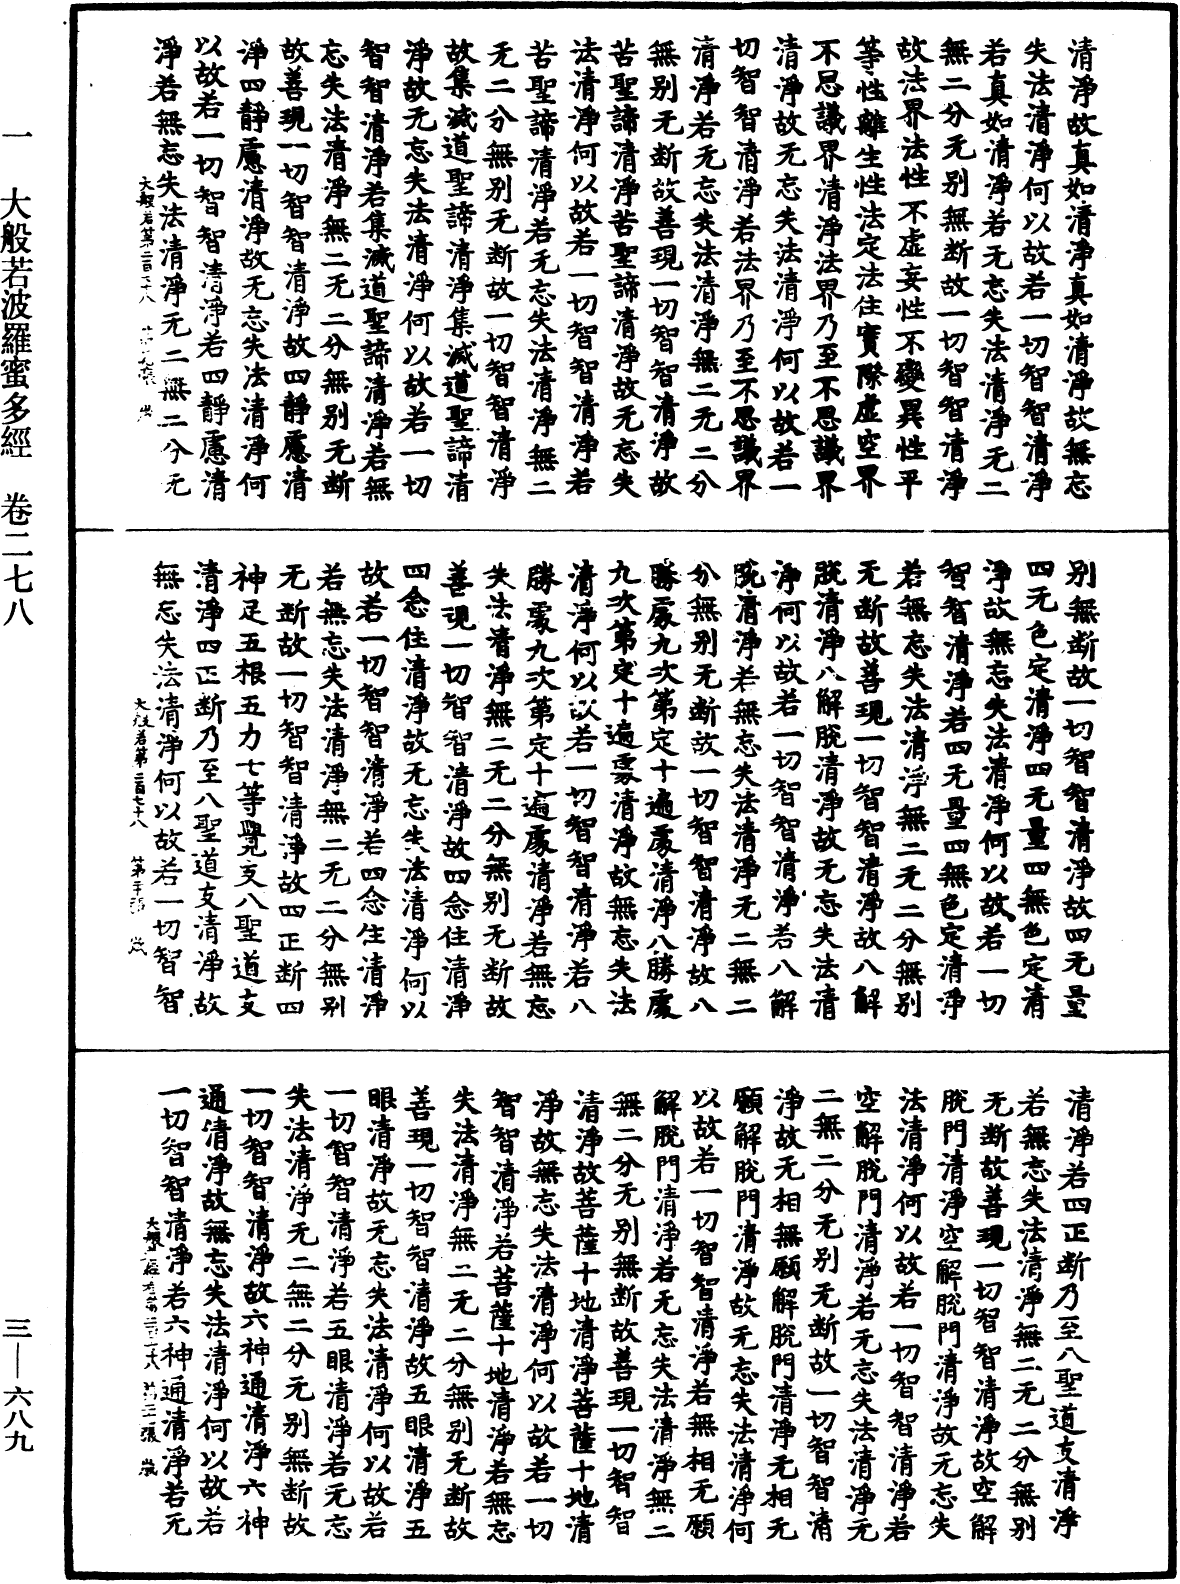 清淨故真如清淨真如清淨故無忘
失法清淨何以故若一切智智清淨
若真如清淨若无忘失法清淨无二
無二分无别無断故一切智智清淨
故法界法性不虛妄性不變異性平
等性離生性法定法住實際虛空界
不思議界清淨法界乃至不思議界
清淨故无忘失法清淨何以故若一
切智智清淨若法界乃至不思議界
清淨若无忘失法清淨無二无二分
無别无断故善現一切智智清淨故
苦聖諦清淨苦聖諦清淨故无忘失
法清淨何以故若一切智智清淨若
苦聖諦清淨若无忘失法清淨無二
无二分無别无断故一切智智清淨
故集滅道聖諦清淨集滅道聖諦清
淨故无忘失法清淨何以故若一切
智智清淨若集滅道聖諦清淨若無
忘失法清淨無二无二分無别无断
故善現一切智智清淨故四靜慮清
淨四靜慮清淨故无忘失法清淨何
以故若一切智智清淨若四靜慮清
淨若無忘失法清淨无二無二分无
别無断故一切智智清淨故四无量
四无色定清淨四无量四無色定清
淨故無忘失法清淨何以故若一切
智智清淨若四无量四無色定清淨
若無忘失法清淨無二无二分無别
无断故善現一切智智清淨故八解
脫清淨八解脫清淨故无忘失法清
淨何以故若一切智智清淨若八解
脫清淨若無忘失法清淨无二無二
分無别无断故一切智智清淨故八
勝處九次第定十遍處清淨八勝處
九次第定十遍處清淨故無忘失法
清淨何以故若一切智智清淨若八
勝處九次第定十遍處清淨若無忘
失法清淨無二无二分無别无断故
善現一切智智清淨故四念住清淨
四念住清淨故无忘失法清淨何以
故若一切智智清淨若四念住清淨
若無忘失法清淨無二无二分無别
无断故一切智智清淨故四正断四
神足五根五力七等覺支八聖道支
清淨四正断乃至八聖道支清淨故
無忘失法清淨何以故若一切智智
大般若第二百七十八
清淨若四正断乃至八聖道支清淨
若無忘失法清淨無二无二分無别
无断故善現一切智智清淨故空解
脫門清淨空解脫門清淨故无忘失
法清淨何以故若一切智智清淨若
空解脫門清淨若无忘失法清淨无
二無二分无别无断故一切智智清
淨故无相無願解脫門清淨无相无
願解脫門清淨故无忘失法清淨何
以故若一切智智清淨若無相无願
解脫門清淨若无忘失法清淨無二
無二分无别無断故善現一切智智
清淨故菩薩十地清淨菩薩十地清
淨故無忘失法清淨何以故若一切
智智清淨若菩薩十地清淨若無忘
失法清淨無二无二分無别无断故
善現一切智智清淨故五眼清淨五
眼清淨故无忘失法清淨何以故若
一切智智清淨若五眼清淨若无忘
失法清淨无二無二分无别無断故
一切智智清淨故六神通清淨六神
通清淨故無忘失法清淨何以故若
一切智智清淨若六神通清淨若无
一 大般若波羅蜜多經 卷二七八
三—六八九